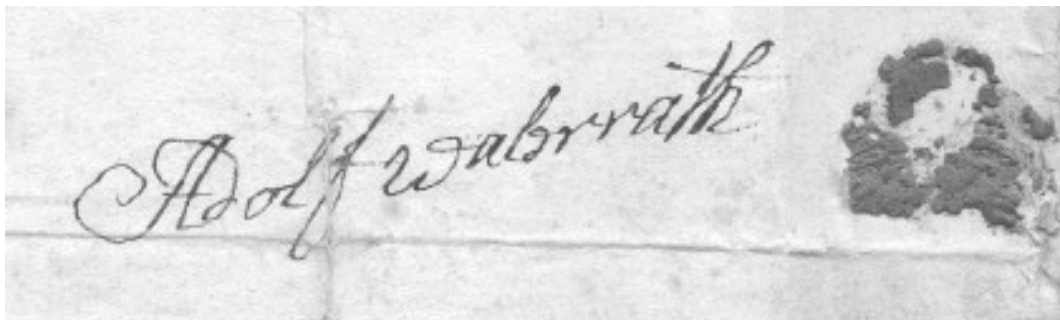 Adolf Wabrrath